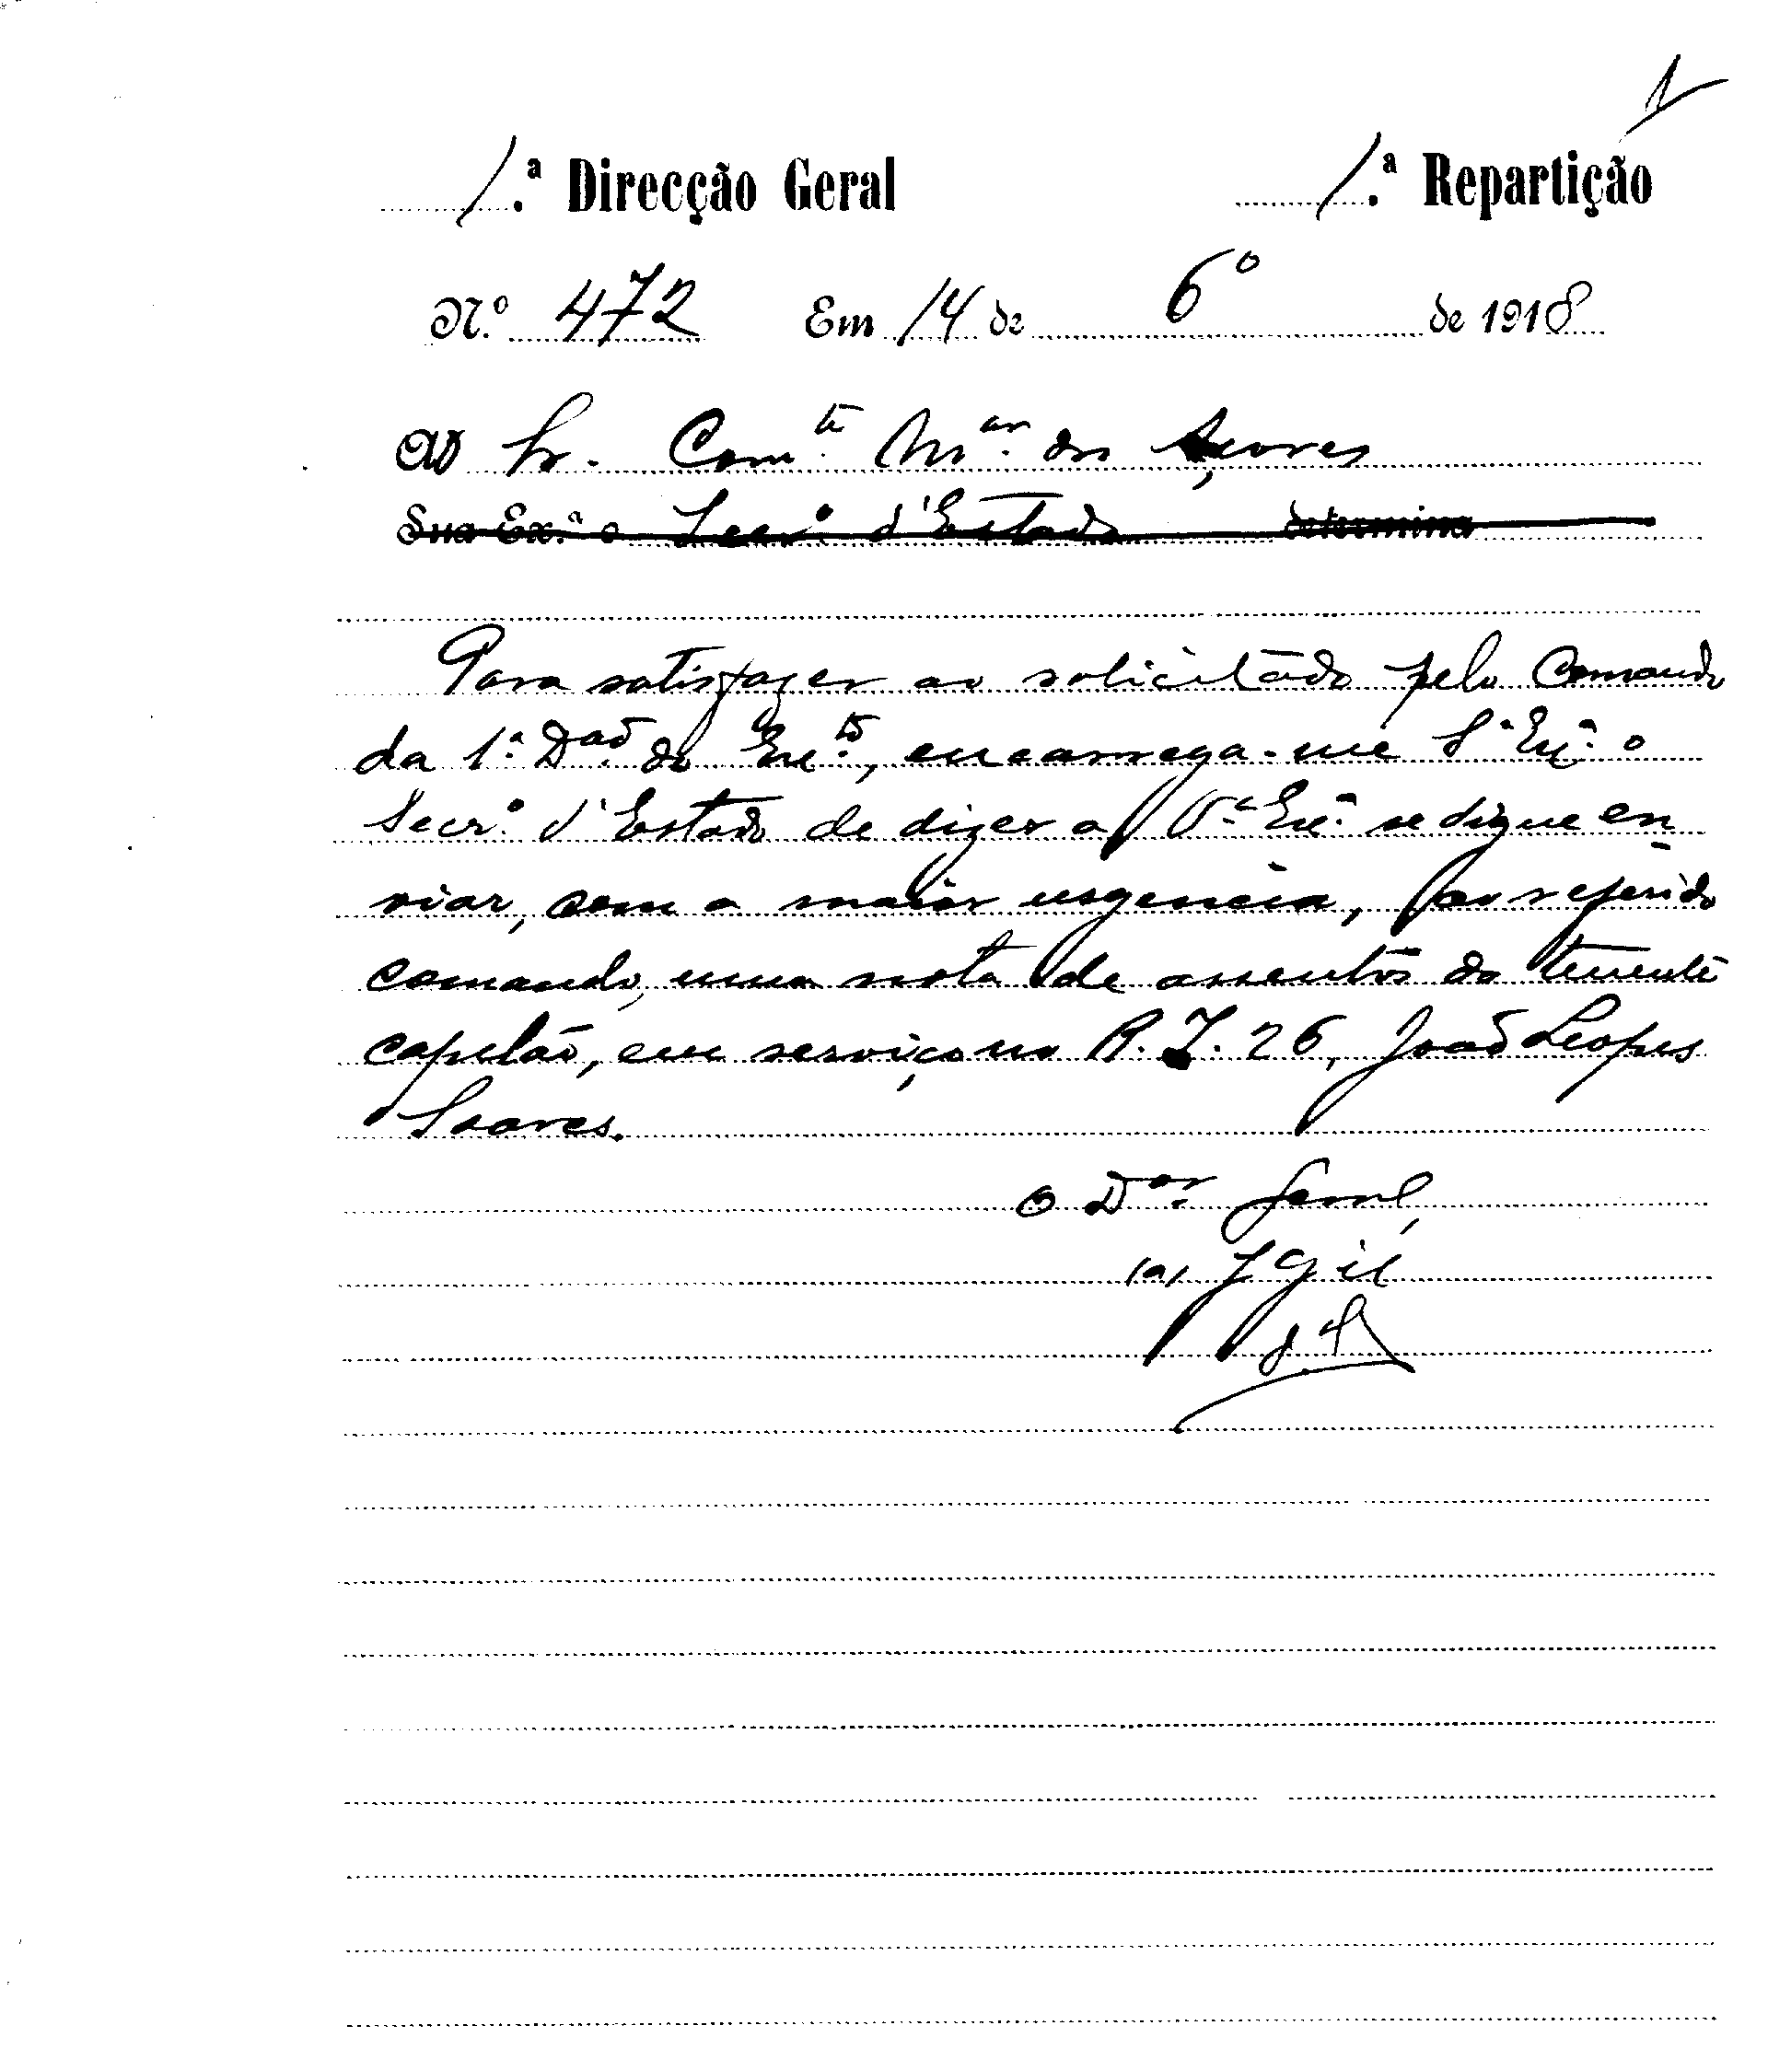 1
1.ª Direcção Geral 1.ª Repartição
N.º 472 Em 14 de 6º de 1918
Ao Sr. Com.te M.ar dos Açores
Sua Ex.ª o Secr.º d'Estado determina
Para satisfazer ao solicitado pelo Comando
da 1.ª D.ão do Ex.to, encarrega-me S.ª Ex.ª o
Secr.º d'Estado de dizer a V.ª Ex.ª se digne en
viar, com a maior urgencia, ao referido
comando, uma nota de assentos do tenente
capelão, em serviço no R. I. 26, João Lopes
Soares.
O D.or Geral,
(a) J Gil